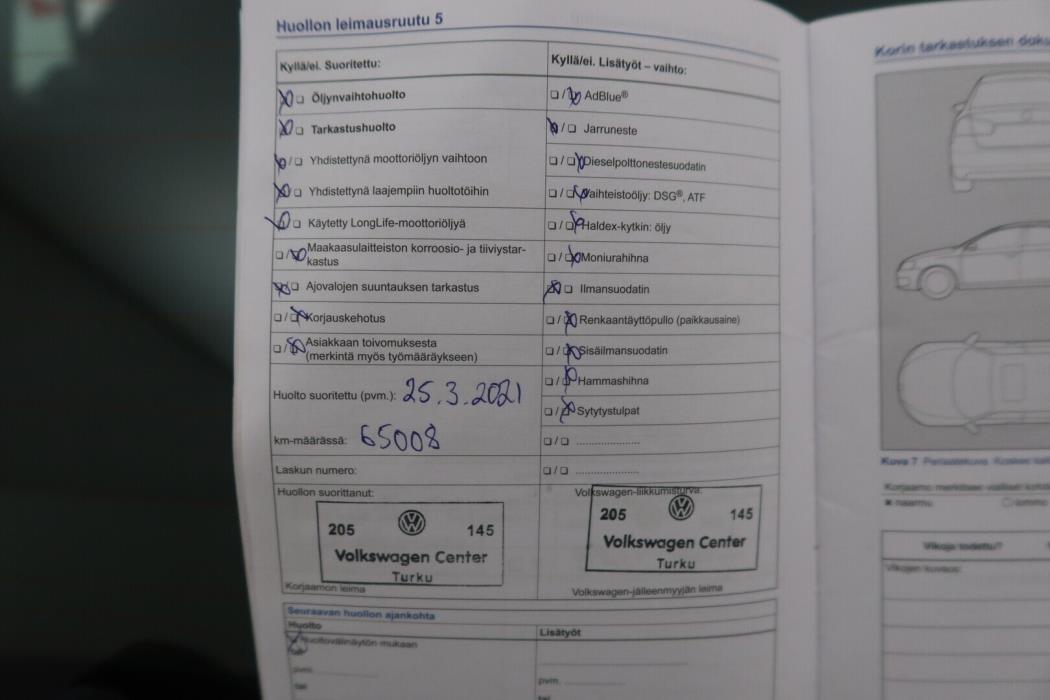 Huollon leimausruutu 5
Kyllä/ei. Suoritettu:
Öljynvaihtohuolto
Tarkastushuolto
Yhdistettynä moottoriöljyn vaihtoon
Yhdistettynä laajempiin huoltotöihin
Käytetty LongLife-moottoriöljyä
Maakaasulaitteiston korroosio- ja tiiviystar-
kastus
Ajovalojen suuntauksen tarkastus
Korjauskehotus
Asiakkaan toivomuksesta
(merkintä myös työmääräykseen)
Huolto suoritettu (pvm.): 25.3.2021
km-määrässä: 65008
Laskun numero:
Huollon suorittanut:
205 145
Volkswagen Center
Turku
Korjaamon leima
Kyllä/ei. Lisätyöt – vaihto:
AdBlue®
Jarruneste
Dieselpolttonestesuodatin
Vaihteistoöljy: DSG®, ATF
Haldex-kytkin: öljy
Moniurahihna
Ilmansuodatin
Renkaantäyttöpullo (paikkausaine)
Sisäilmansuodatin
Hammashihna
Sytytystulpat
Volkswagen-liikkumisturva:
205 145
Volkswagen Center
Turku
Volkswagen-jälleenmyyjän leima
Seuraavan huollon ajankohta
Huolto
Huoltovälinäytön mukaan
tai
pvm.
tai
Lisätyöt
pvm.
tai
Korin tarkastuksen
Kuva 7
naarmu
Vikoja todettu?
Vikojen kuvaus: